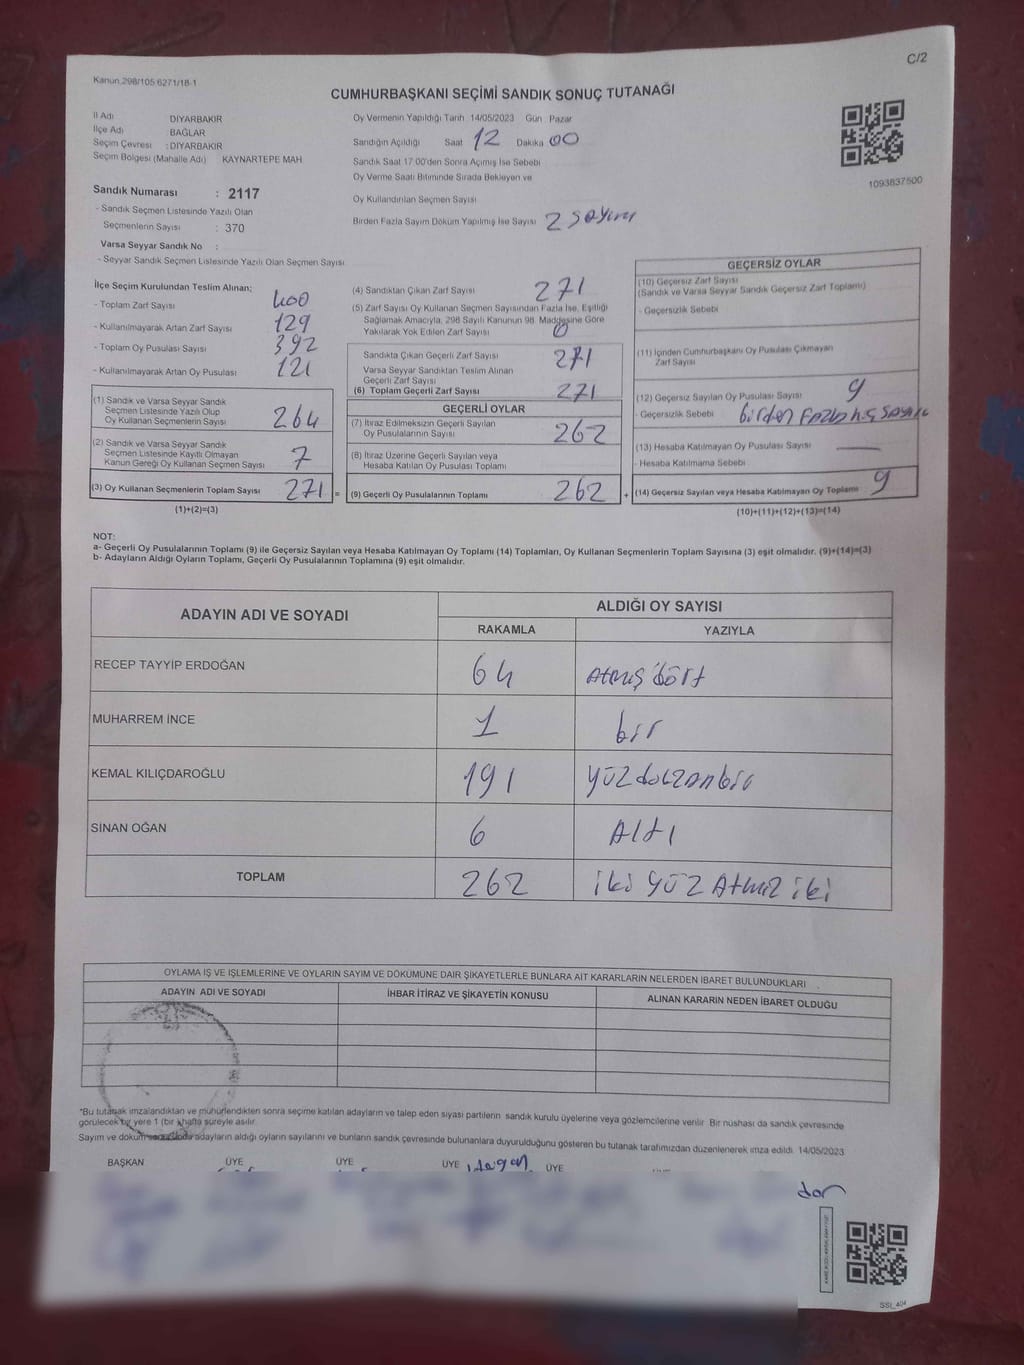 C/2
Kanun 298/105 6271/18-1
CUMHURBAŞKANI SEÇİMİ SANDIK SONUÇ TUTANAĞI
1093837500
İl Adı DİYARBAKIR
İlçe Adı BAĞLAR
Seçim Çevresi : DİYARBAKIR
Seçim Bölgesi (Mahalle Adı) KAYNARTEPE MAH
Sandık Numarası : 2117
- Sandık Seçmen Listesinde Yazılı Olan
Seçmenlerin Sayısı : 370
Varsa Seyyar Sandık No :
- Seyyar Sandık Seçmen Listesinde Yazılı Olan Seçmen Sayısı
Oy Vermenin Yapıldığı Tarih 14/05/2023 Gün Pazar
Sandığın Açıldığı Saat 12 Dakika 00
Sandık Saat 17:00'den Sonra Açımış İse Sebebi
Oy Verme Saati Bitiminde Sırada Bekleyen ve
Oy Kullandırılan Seçmen Sayısı
Birden Fazla Sayım Döküm Yapılmış İse Sayısı 2 sayım
İlçe Seçim Kurulundan Teslim Alınan;
- Toplam Zarf Sayısı 400
- Kullanılmayarak Artan Zarf Sayısı 129
- Toplam Oy Pusulası Sayısı 392
- Kullanılmayarak Artan Oy Pusulası 121
(1) Sandık ve Varsa Seyyar Sandık
Seçmen Listesinde Yazılı Olup
Oy Kullanan Seçmenlerin Sayısı 264
(2) Sandık ve Varsa Seyyar Sandık
Seçmen Listesinde Kayıtlı Olmayan
Kanun Gereği Oy Kullanan Seçmen Sayısı 7
(3) Oy Kullanan Seçmenlerin Toplam Sayısı 271 =
(1)+(2)=(3)
(4) Sandıktan Çıkan Zarf Sayısı 271
(5) Zarf Sayısı Oy Kullanan Seçmen Sayısından Fazla İse, Eşitliği
Sağlamak Amacıyla, 298 Sayılı Kanunun 98. Maddesine Göre
Yakılarak Yok Edilen Zarf Sayısı 0
Sandıkta Çıkan Geçerli Zarf Sayısı 271
Varsa Seyyar Sandıktan Teslim Alınan
Geçerli Zarf Sayısı
(6) Toplam Geçerli Zarf Sayısı 271
GEÇERLİ OYLAR
(7) İtiraz Edilmeksizin Geçerli Sayılan
Oy Pusulalarının Sayısı 262
(8) İtiraz Üzerine Geçerli Sayılan veya
Hesaba Katılan Oy Pusulası Toplamı
(9) Geçerli Oy Pusulalarının Toplamı 262 +
GEÇERSİZ OYLAR
(10) Geçersiz Zarf Sayısı
(Sandık ve Varsa Seyyar Sandık Geçersiz Zarf Toplamı)
- Geçersizlik Sebebi
(11) İçinden Cumhurbaşkanı Oy Pusulası Çıkmayan
Zarf Sayısı
(12) Geçersiz Sayılan Oy Pusulası Sayısı 9
- Geçersizlik Sebebi birden Fazla
(13) Hesaba Katılmayan Oy Pusulası Sayısı —
- Hesaba Katılmama Sebebi
(14) Geçersiz Sayılan veya Hesaba Katılmayan Oy Toplamı 9
(10)+(11)+(12)+(13)=(14)
NOT:
a- Geçerli Oy Pusulalarının Toplamı (9) ile Geçersiz Sayılan veya Hesaba Katılmayan Oy Toplamı (14) Toplamları, Oy Kullanan Seçmenlerin Toplam Sayısına (3) eşit olmalıdır. (9)+(14)=(3)
b- Adayların Aldığı Oyların Toplamı, Geçerli Oy Pusulalarının Toplamına (9) eşit olmalıdır.
ADAYIN ADI VE SOYADI ALDIĞI OY SAYISI
RAKAMLA YAZIYLA
RECEP TAYYİP ERDOĞAN 64 Atmış dört
MUHARREM İNCE 1 bir
KEMAL KILIÇDAROĞLU 191 yüz doczan bir
SİNAN OĞAN 6 Altı
TOPLAM 262 iki yüz Atmız iki
OYLAMA İŞ VE İŞLEMLERİNE VE OYLARIN SAYIM VE DÖKÜMÜNE DAİR ŞİKAYETLERLE BUNLARA AİT KARARLARIN NELERDEN İBARET BULUNDUKLARI
ADAYIN ADI VE SOYADI İHBAR İTİRAZ VE ŞİKAYETİN KONUSU ALINAN KARARIN NEDEN İBARET OLDUĞU
*Bu tutanak imzalandıktan ve mühürlendikten sonra seçime katılan adayların ve talep eden siyasi partilerin sandık kurulu üyelerine veya gözlemcilerine verilir. Bir nüshası da sandık çevresinde
görülecek bir yere 1 (bir) hafta süreyle asılır.
Sayım ve döküm sonucunda adayların aldığı oyların sayılarını ve bunların sandık çevresinde bulunanlara duyurulduğunu gösteren bu tutanak tarafımızdan düzenlenerek imza edildi. 14/05/2023
BAŞKAN ÜYE ÜYE ÜYE ÜYE
dor
SSI_404